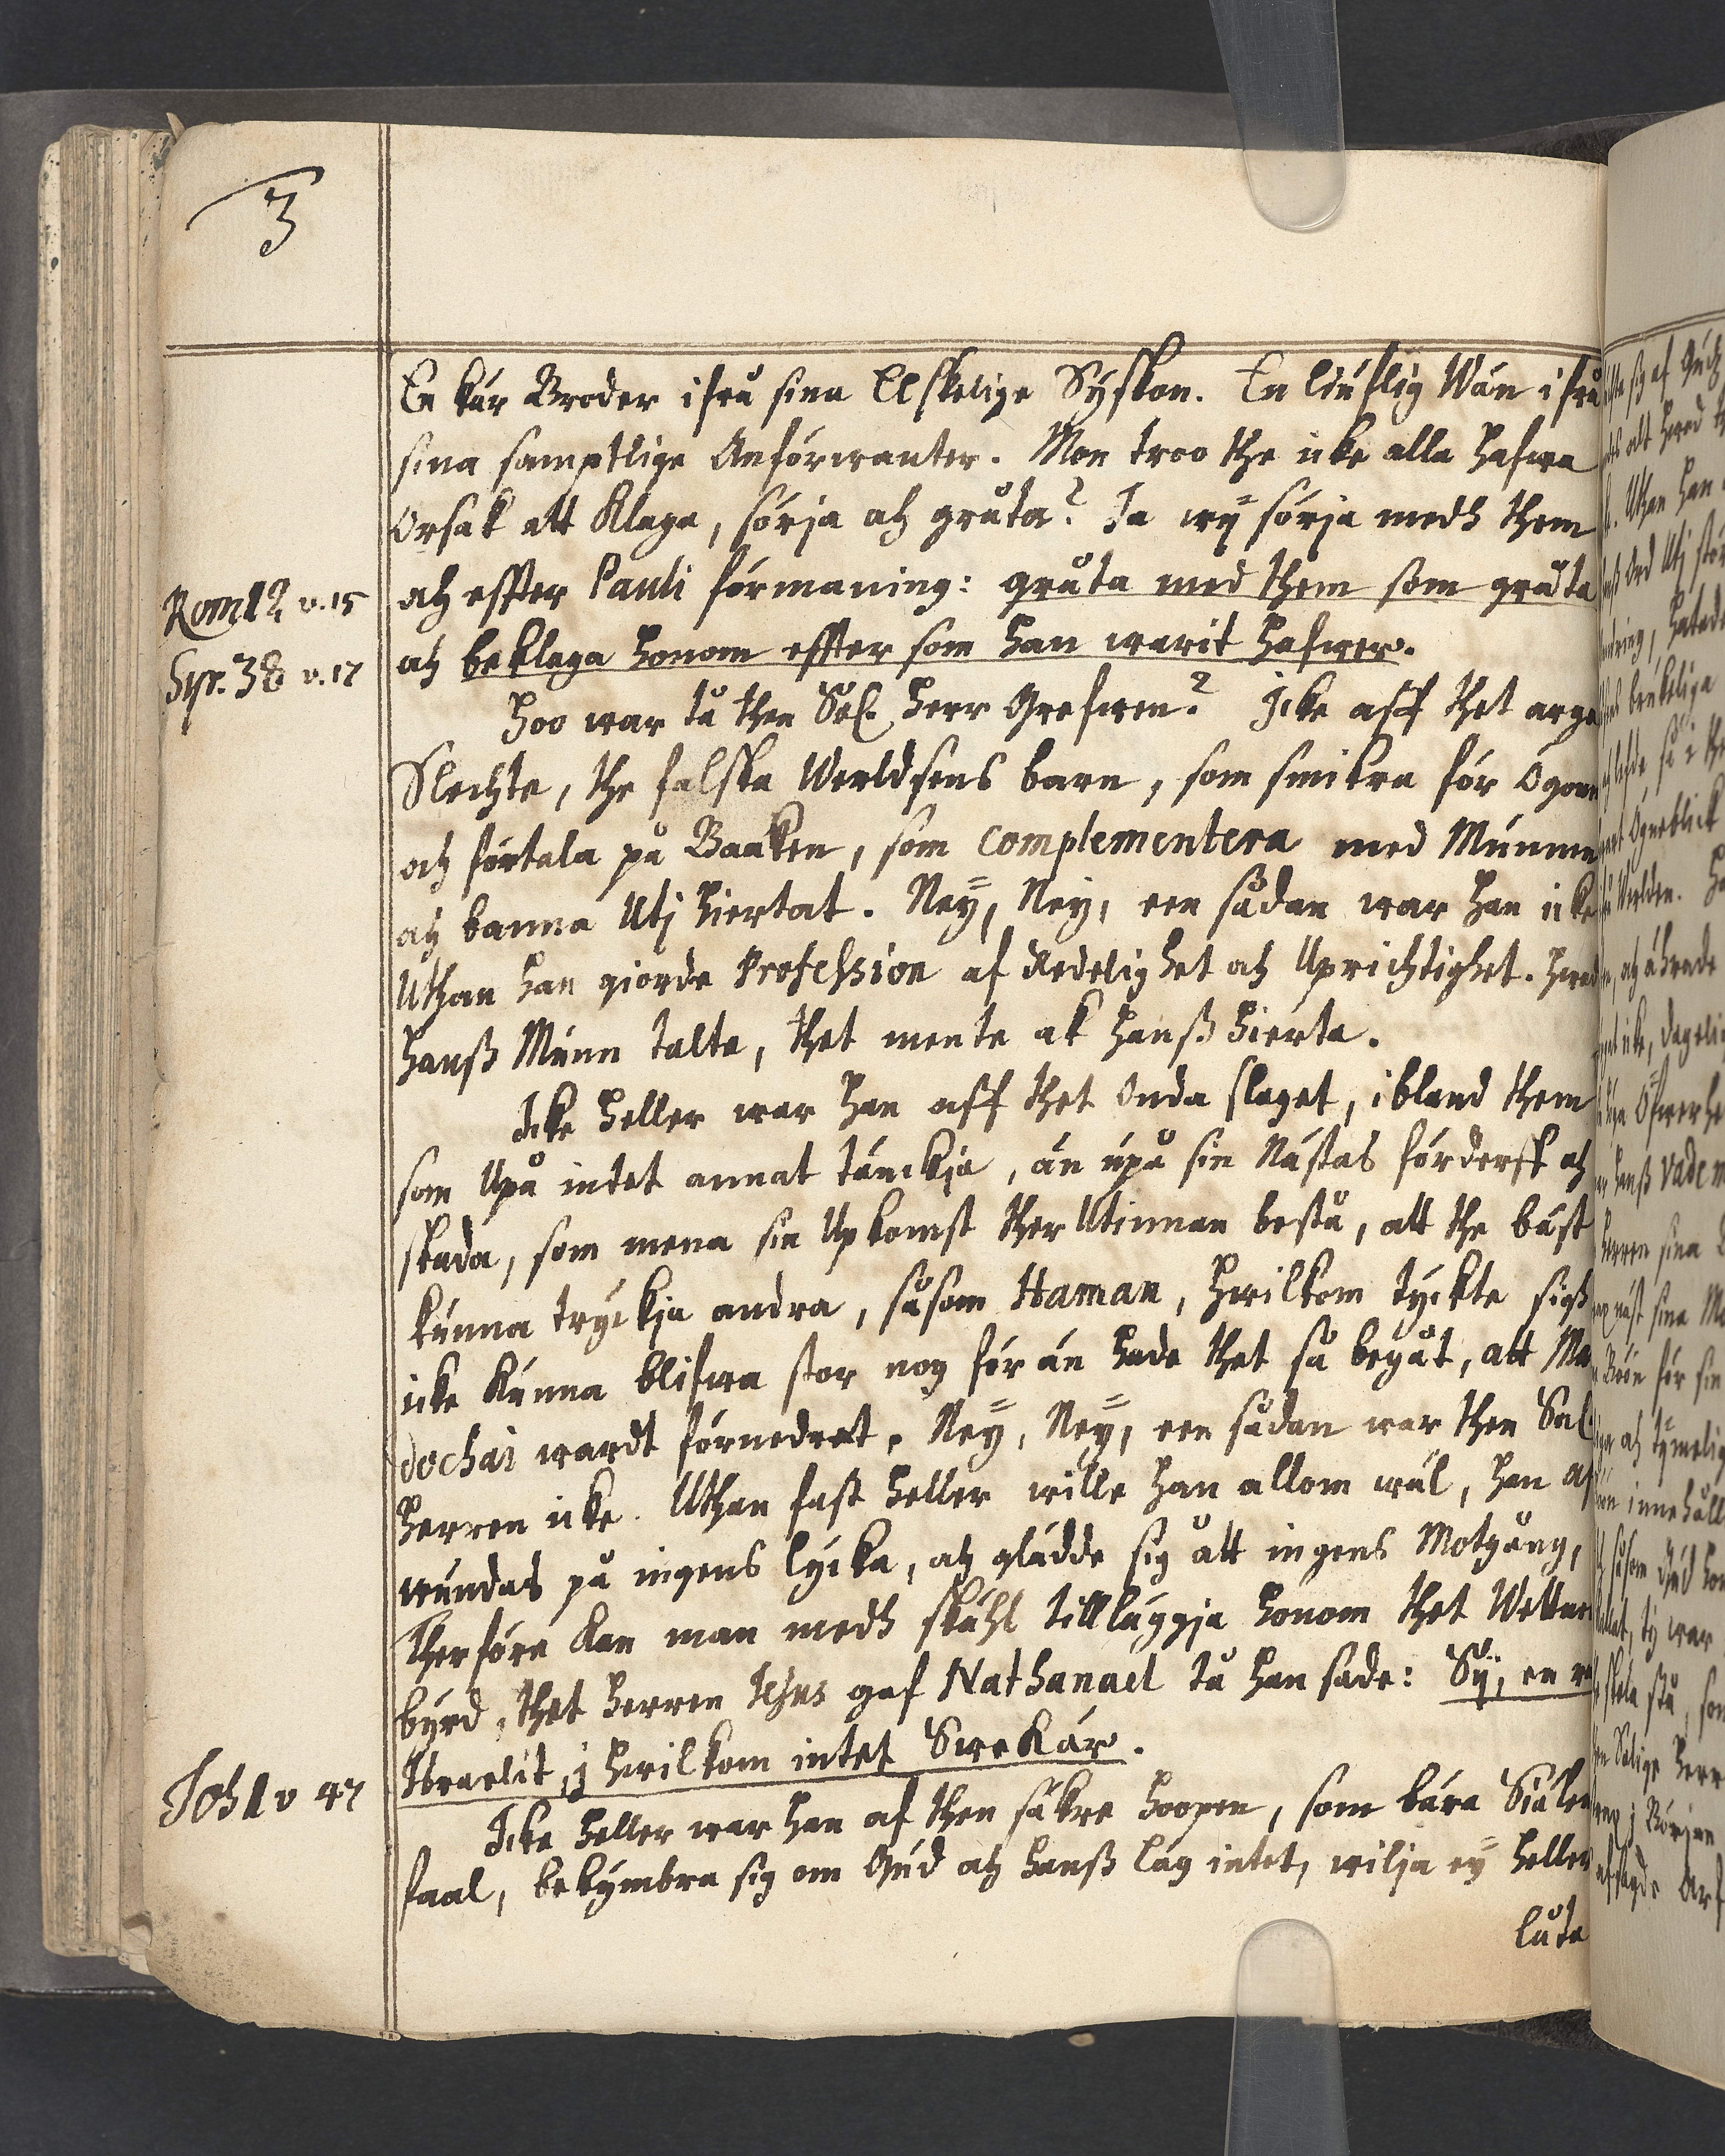 3
En kär Broder ifrå sina Elskelige Syskon. En liuflig Wän ifrå
sina samptlige Anförwanter. Mon troo the icke alla hafwa
Orsak att Klaga, sörja och gråta? Ja wÿ sörja medh them
Rom 12 v. 15
och effter Pauli förmaning: gråta med them som gråta
Syr. 38 v. 17
och beklaga honom effter som han warit hafwer.
Hoo war tå then Sal. Herr Grefwen? Icke aff thet arga
Slechte, the falska Werldsens barn, som smikra för Ögonen
och förtala på Baaken, som complementera med Munnen
och banna Utj hiertat. Neÿ, Neÿ, een sådan war han icke
Uthan han giorde Profession af Redelighet och Uprichtighet. Hwad
hanß Munn talte, thet mente ok hanß hierta.
Icke heller war han aff thet Onda slaget, ibland them
som Upå intet annat tänckja, än upå sin Nästas förderff och
skada, som mena sin Upkomst ther Utinnan bestå, att the bäst
kunna tryckja andra, såsom Haman, hwilkom tyckte sigh
icke Kunna blifwa stor nog för än hade thet så begåt, att Mar
dochai wardt förnedrat. Neÿ, Neÿ, een sådan war then Sal.
Herren icke. Uthan fast heller wille han allom wäl, han af
wundas på ingens lycka, och glädde sig åt ingens Motgång,
Therföre kan man medh skähl tilläggja honom thet Wittnes
byrd, thet Herren Jesus gaf Nathanael tå han sade: Sÿ, en r
Joh 1 v 47
Israelit, j hwilkom intet Swek är.
Icke heller war han af then säkre hoopen, som bära Siälen
faal, bekymbra sig om Gud och hanß lag intet, wilja eÿ heller
låta